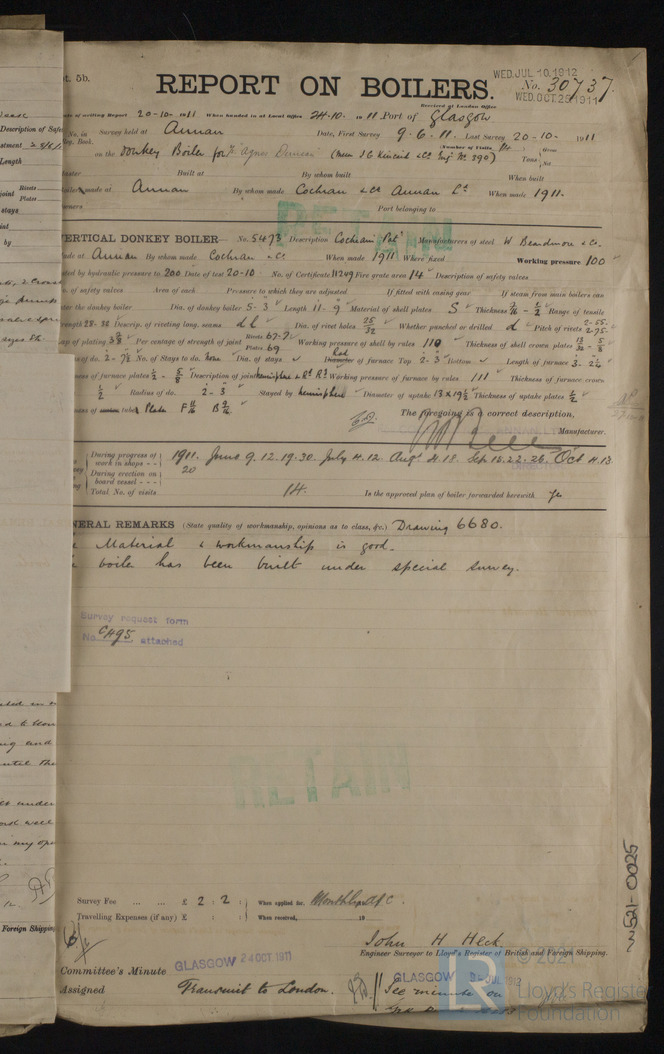 pt. 5b.
REPORT ON BOILERS.
WED. JUL 10. 1912
No. 30737.
Received at London Office
WED. OCT. 25 1911
Date of writing Report 20-10-1911 When handed in at Local Office 24-10-1911 Port of Glasgow
No. in Survey held at Annan Date, First Survey 9-6-11. Last Survey 20-10-1911
Reg. Book. (Number of Visits 14)
on the Donkey Boiler for "Agnes Duncan" (Mess J G Kincaid & Co Eng No 390) Tons Gross Net
Master Built at By whom built When built
Boiler made at Annan By whom made Cochran & Co Annan Ld When made 1911.
Owners Port belonging to
RETAIN
VERTICAL DONKEY BOILER— No. 5473 Description Cochran Patt Manufacturers of steel W Beardmore & Co.
Made at Annan By whom made Cochran & Co. When made 1911 Where fixed Working pressure 100
tested by hydraulic pressure to 200 Date of test 20-10- No. of Certificate 11249 Fire grate area 14 Description of safety valves
No. of safety valves Area of each Pressure to which they are adjusted If fitted with easing gear If steam from main boilers can
enter the donkey boiler Dia. of donkey boiler 5-3 Length 11-9 Material of shell plates S Thickness Range of tensile
strength 28-32 Descrip. of riveting long. seams d l Dia. of rivet holes 25/32 Whether punched or drilled d Pitch of rivets
Lap of plating Per centage of strength of joint Rivets 67.7 Plates 69 Working pressure of shell by rules 110 Thickness of shell crown plates
Radius of do. No. of Stays to do. none Dia. of stays Rad Diameter of furnace Top 2-3 Bottom Length of furnace
Thickness of furnace plates Description of joint Working pressure of furnace by rules 111 Thickness of furnace crown
1/2 Radius of do. 2-3 Stayed by hemisphere Diameter of uptake 13 x 19½ Thickness of uptake plates
Thickness of water tubes Plate F B
The foregoing is a correct description,
Manufacturer.
During progress of work in shops - - 1911. June 9. 12. 19. 30. July 4. 12. Aug 4. 18. Sep 15. 22. 26. Oct 4. 13.
During erection on board vessel - - - 20
Total No. of visits 14. Is the approved plan of boiler forwarded herewith yes
GENERAL REMARKS (State quality of workmanship, opinions as to class, &c.) Drawing 6680.
Material & workmanship is good.
boiler has been built under special survey.
Survey request form
No. attached
RETAIN
Survey Fee ... ... £ 2 : 2 : When applied for, Monthly A/C.
Travelling Expenses (if any) £ : : When received, 19
John H Heck
Engineer Surveyor to Lloyd's Register of British and Foreign Shipping.
Committee's Minute GLASGOW 24 OCT. 1911 GLASGOW JUL 1912
Assigned Transmit to London. See minute on
W521-0025
© 2021
LR
Lloyd's Register
Foundation
Description of Safe
Length
Rivets
Plates
stays
by
Foreign Shipping